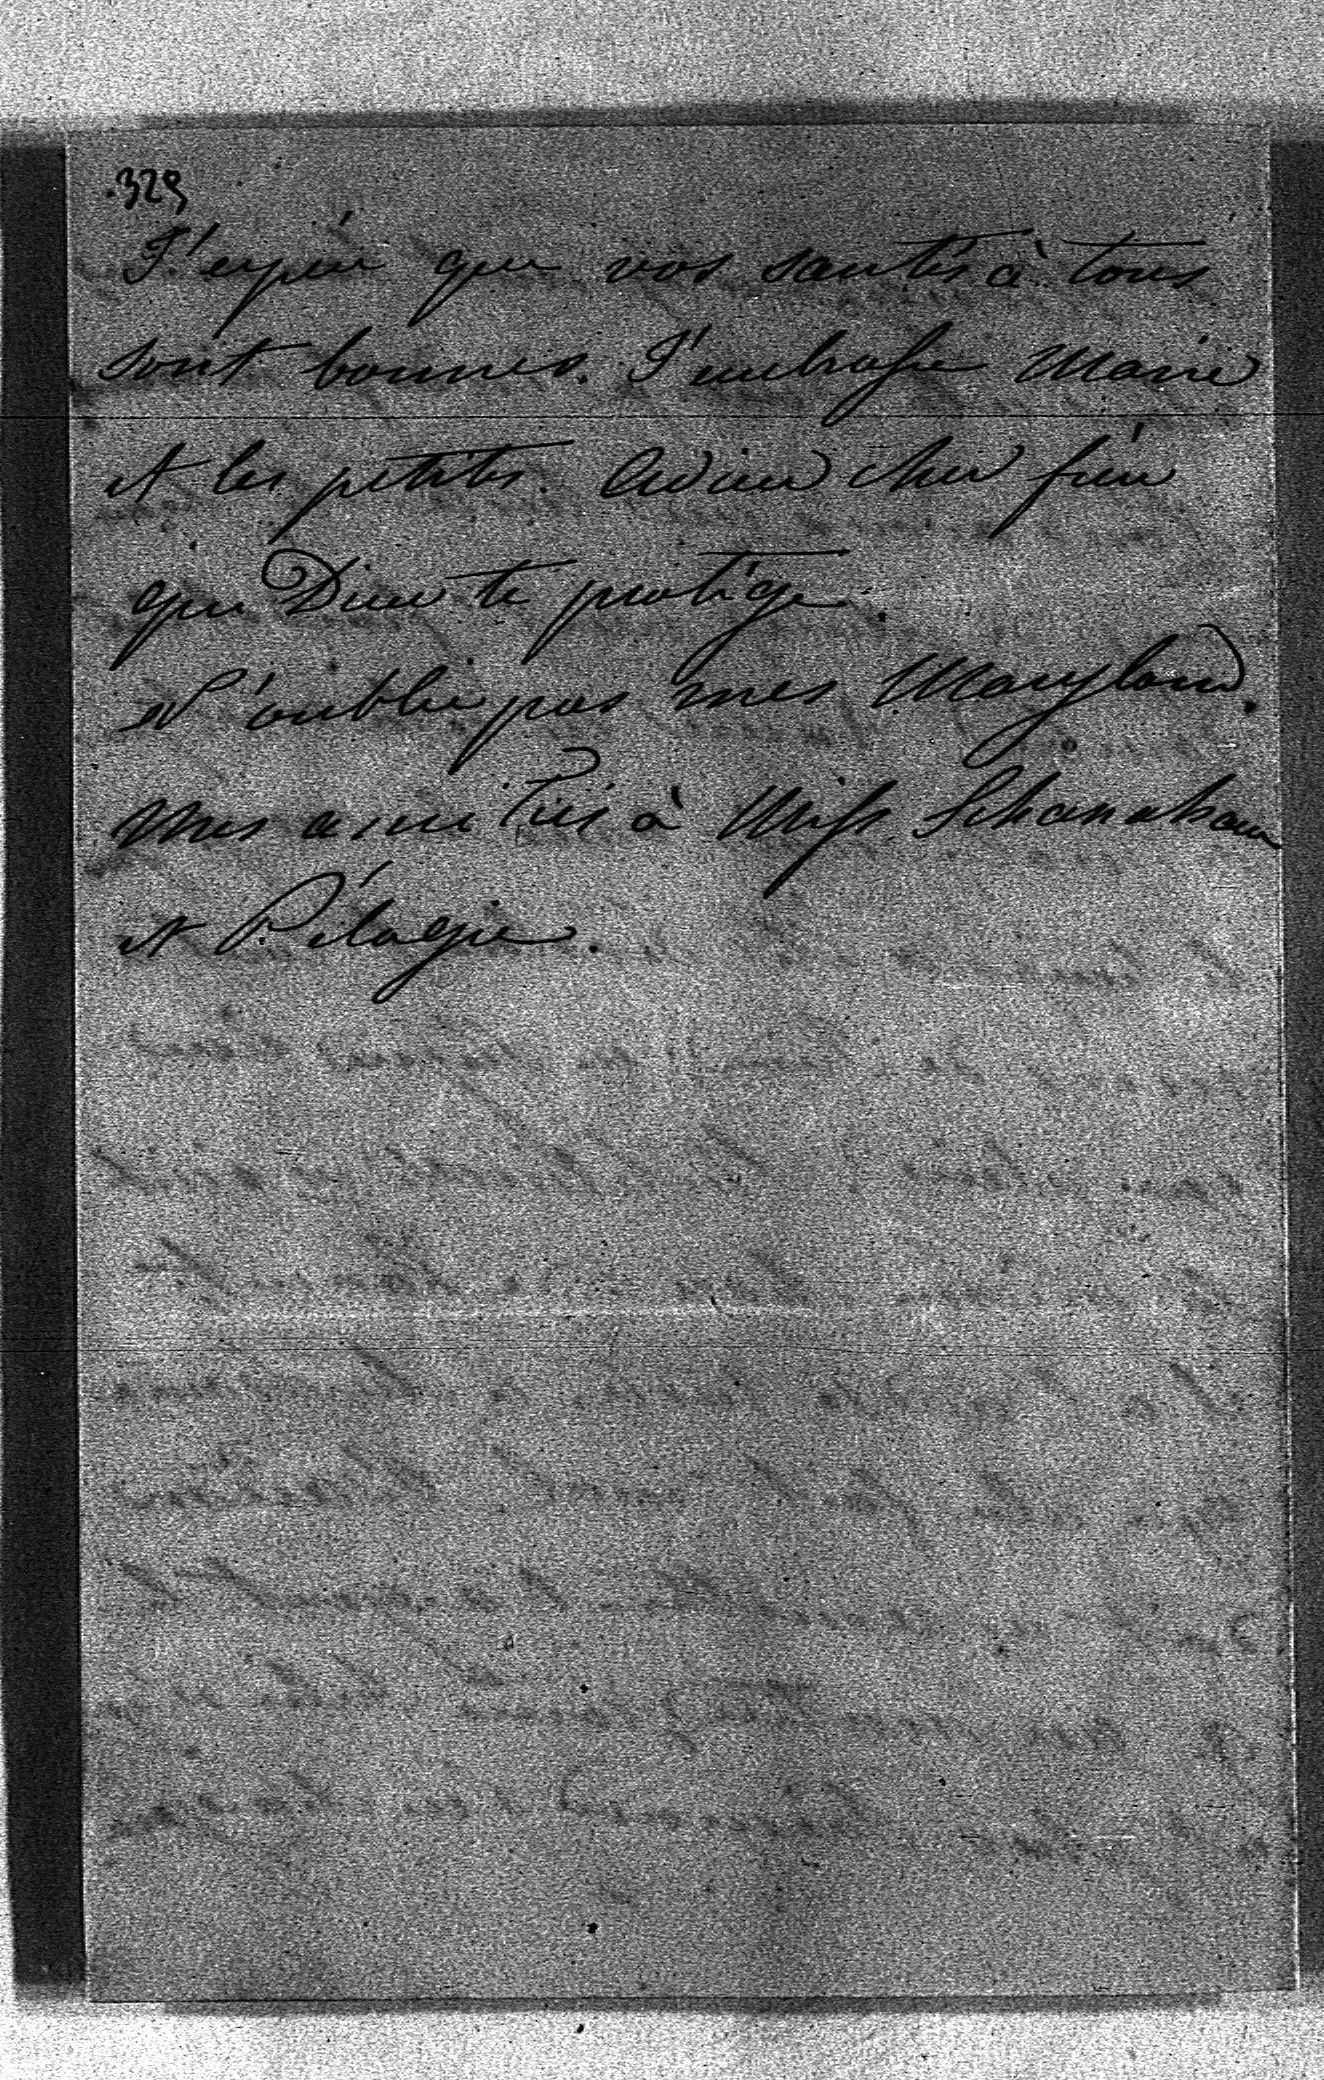 329
J'espère que vos santés à tous
sont bonnes. J'embrasse Marie
et les petits. Adieu cher frère
que Dieu te protège.
N'oublie pas mes Maryland.
Mes amitiés à Miss Schanahan
et Pélagie.